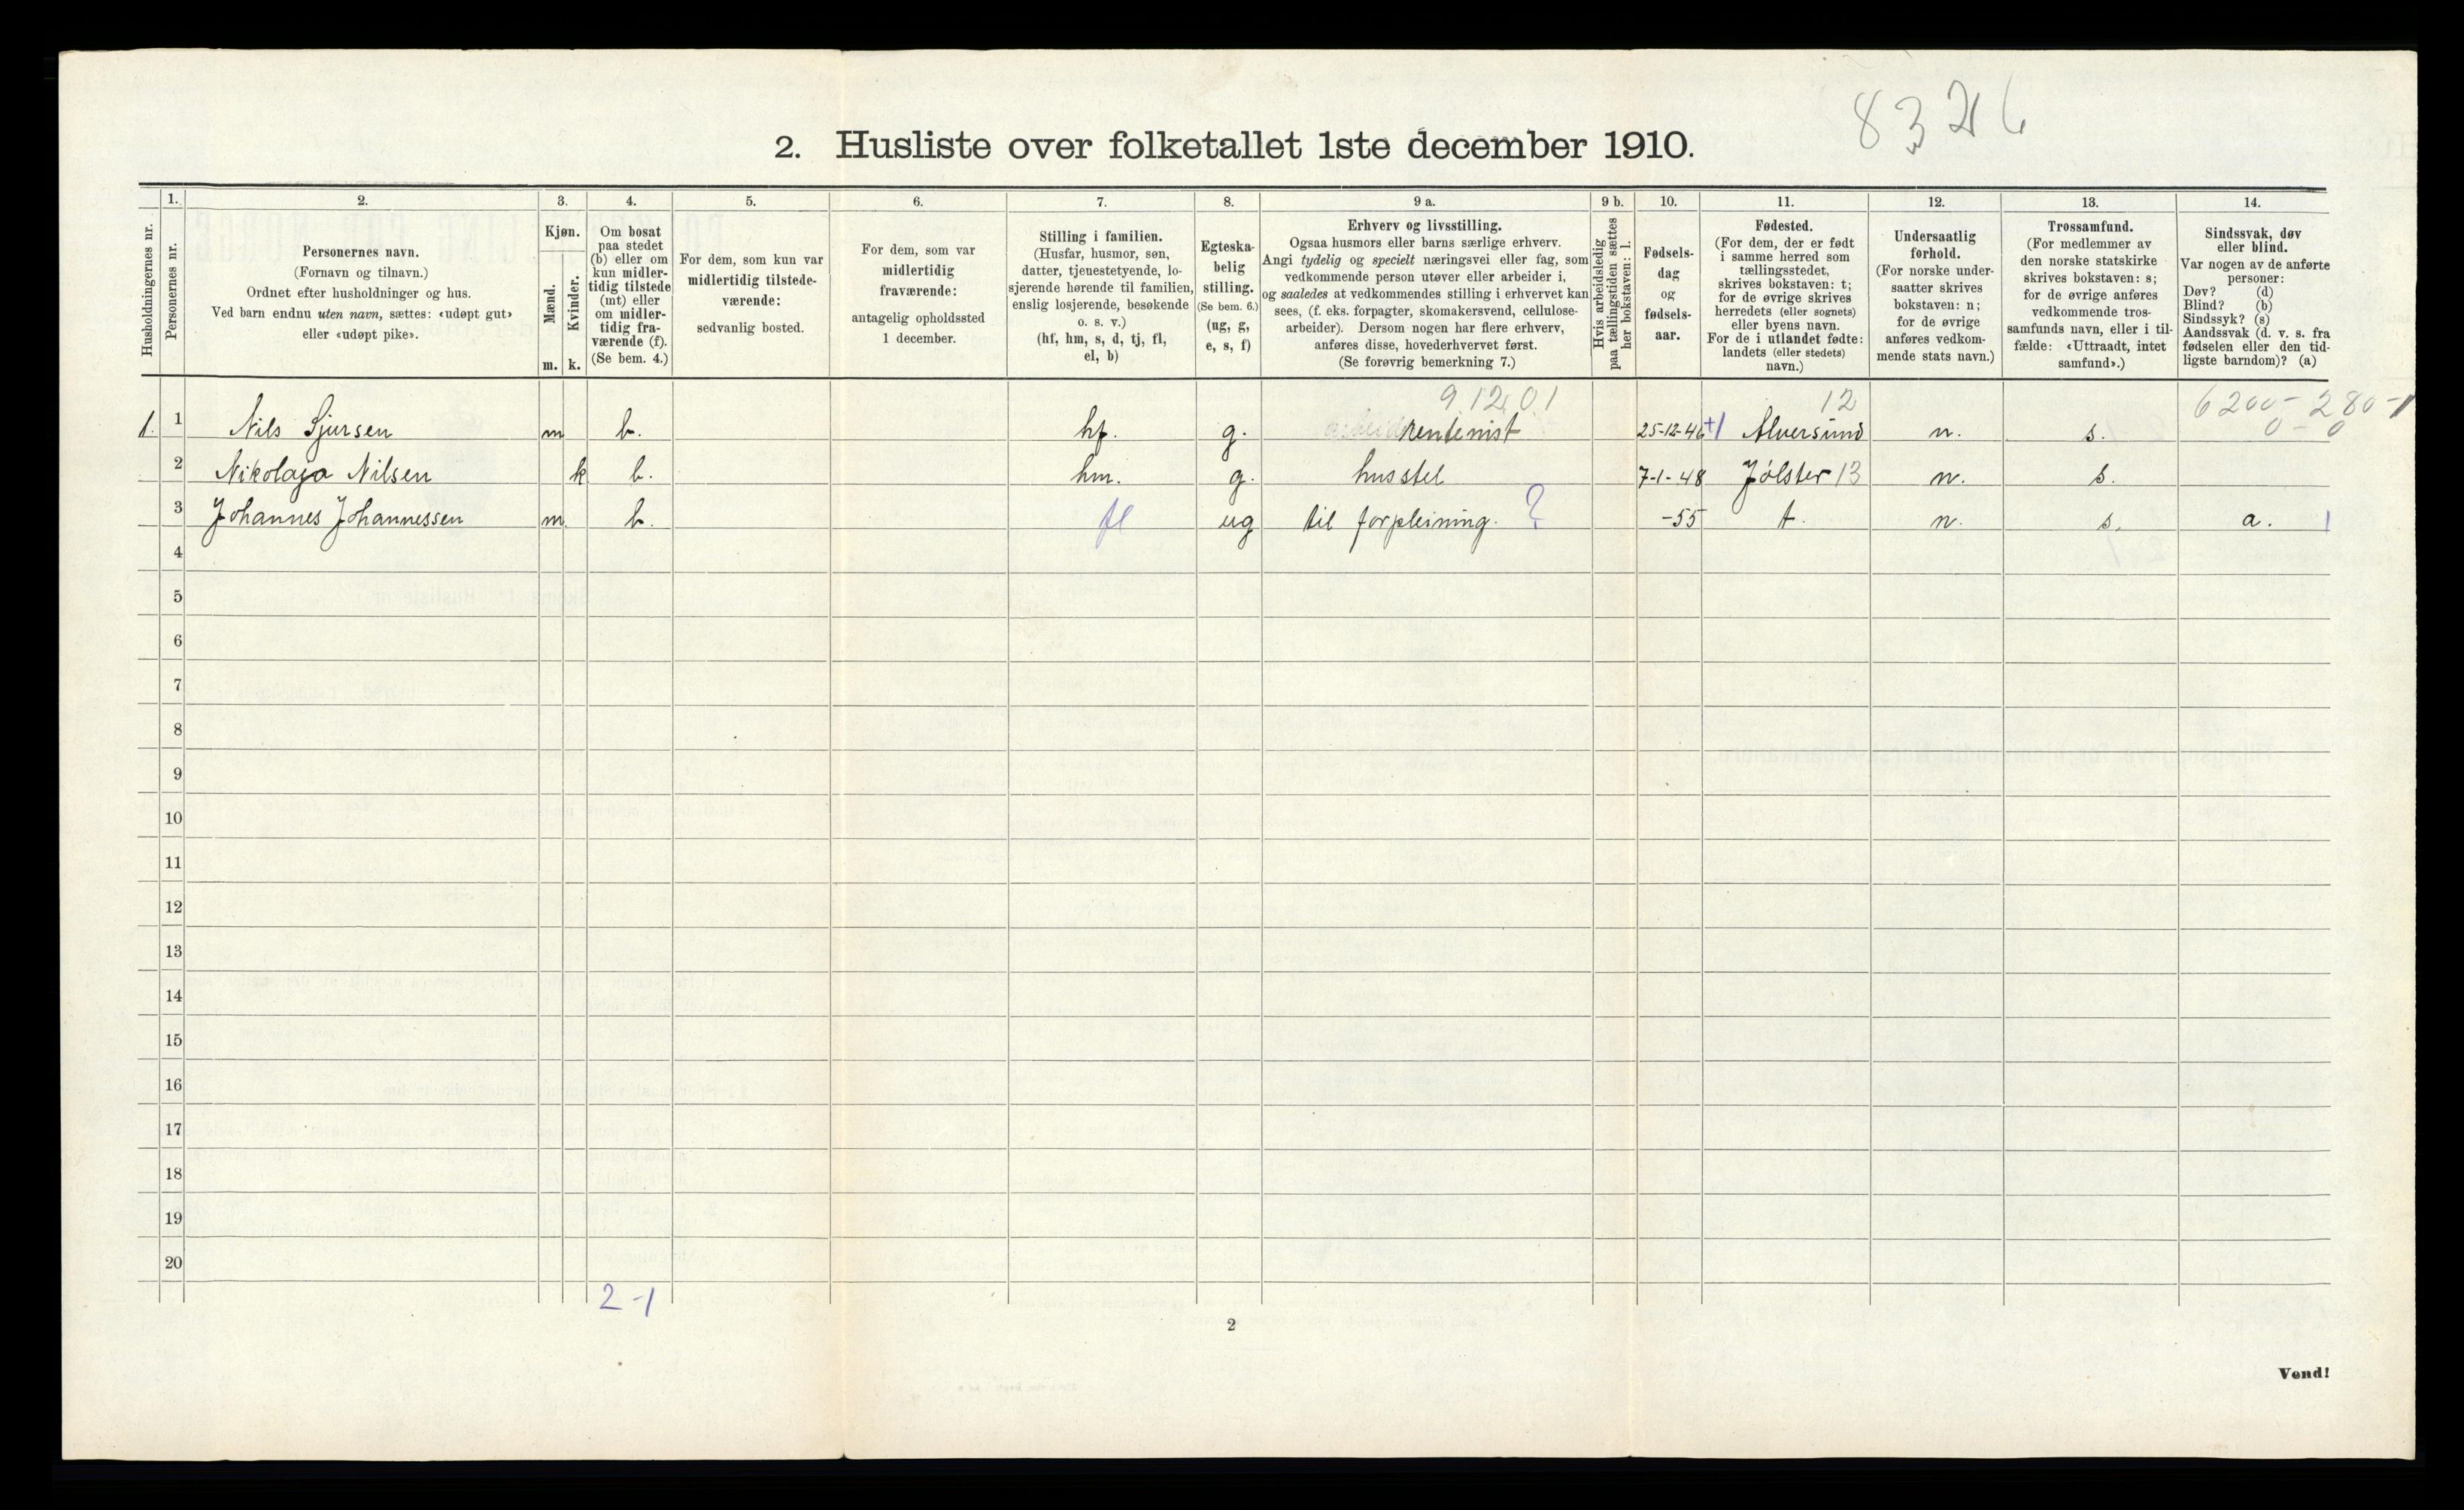 8326
2. Husliste over folketallet 1ste december 1910.
Husholdningernes nr.
1.
Personernes nr.
2.
Personernes navn.
(Fornavn og tilnavn.)
Ordnet efter husholdninger og hus.
Ved barn endnu uten navn, sættes: «udøpt gut»
eller «udøpt pike».
3.
Kjøn.
Mænd.
Kvinder.
m. k.
4.
Om bosat
paa stedet
(b) eller om
kun midler-
tidig tilstede
(mt) eller
om midler-
tidig fra-
værende (f).
(Se bem. 4.)
5.
For dem, som kun var
midlertidig tilstede-
værende:
sedvanlig bosted.
6.
For dem, som var
midlertidig
fraværende:
antagelig opholdssted
1 december.
7.
Stilling i familien.
(Husfar, husmor, søn,
datter, tjenestetyende, lo-
sjerende hørende til familien,
enslig losjerende, besøkende
o. s. v.)
(hf, hm, s, d, tj, fl,
el, b)
8.
Egteska-
belig
stilling.
(Se bem. 6.)
(ug, g,
e, s, f)
9 a.
Erhverv og livsstilling.
Ogsaa husmors eller barns særlige erhverv.
Angi tydelig og specielt næringsvei eller fag, som
vedkommende person utøver eller arbeider i,
og saaledes at vedkommendes stilling i erhvervet kan
sees, (f. eks. forpagter, skomakersvend, cellulose-
arbeider). Dersom nogen har flere erhverv,
anføres disse, hovederhvervet først.
(Se forøvrig bemerkning 7.)
9 b.
Hvis arbeidsledig
paa tællingstiden sættes
her bokstaven: l.
10.
Fødsels-
dag
og
fødsels-
aar.
11.
Fødested.
(For dem, der er født
i samme herred som
tællingsstedet,
skrives bokstaven: t;
for de øvrige skrives
herredets (eller sognets)
eller byens navn.
For de i utlandet fødte:
landets (eller stedets)
navn.)
12.
Undersaatlig
forhold.
(For norske under-
saatter skrives
bokstaven: n;
for de øvrige
anføres vedkom-
mende stats navn.)
13.
Trossamfund.
(For medlemmer av
den norske statskirke
skrives bokstaven: s;
for de øvrige anføres
vedkommende tros-
samfunds navn, eller i til-
fælde: «Uttraadt, intet
samfund».)
14.
Sindssvak, døv
eller blind.
Var nogen av de anførte
personer:
Døv? (d)
Blind? (b)
Sindssyk? (s)
Aandssvak (d. v. s. fra
fødselen eller den tid-
ligste barndom)? (a)
9.12.01 12 6200-280-1
0-0
1. 1 Nils Sjursen m b. hf. g. rentenist 25-12-46 +1 Alversund n. s.
2 Nikolaja Nilsen k b. hm. g. husstel 7-1-48 Jølster 13 n. s.
3 Johannes Johannessen m b. fl ug til forpleining. ? -55 t. n. s. a. 1
4
5
6
7
8
9
10
11
12
13
14
15
16
17
18
19
20
2-1
2
Vend!